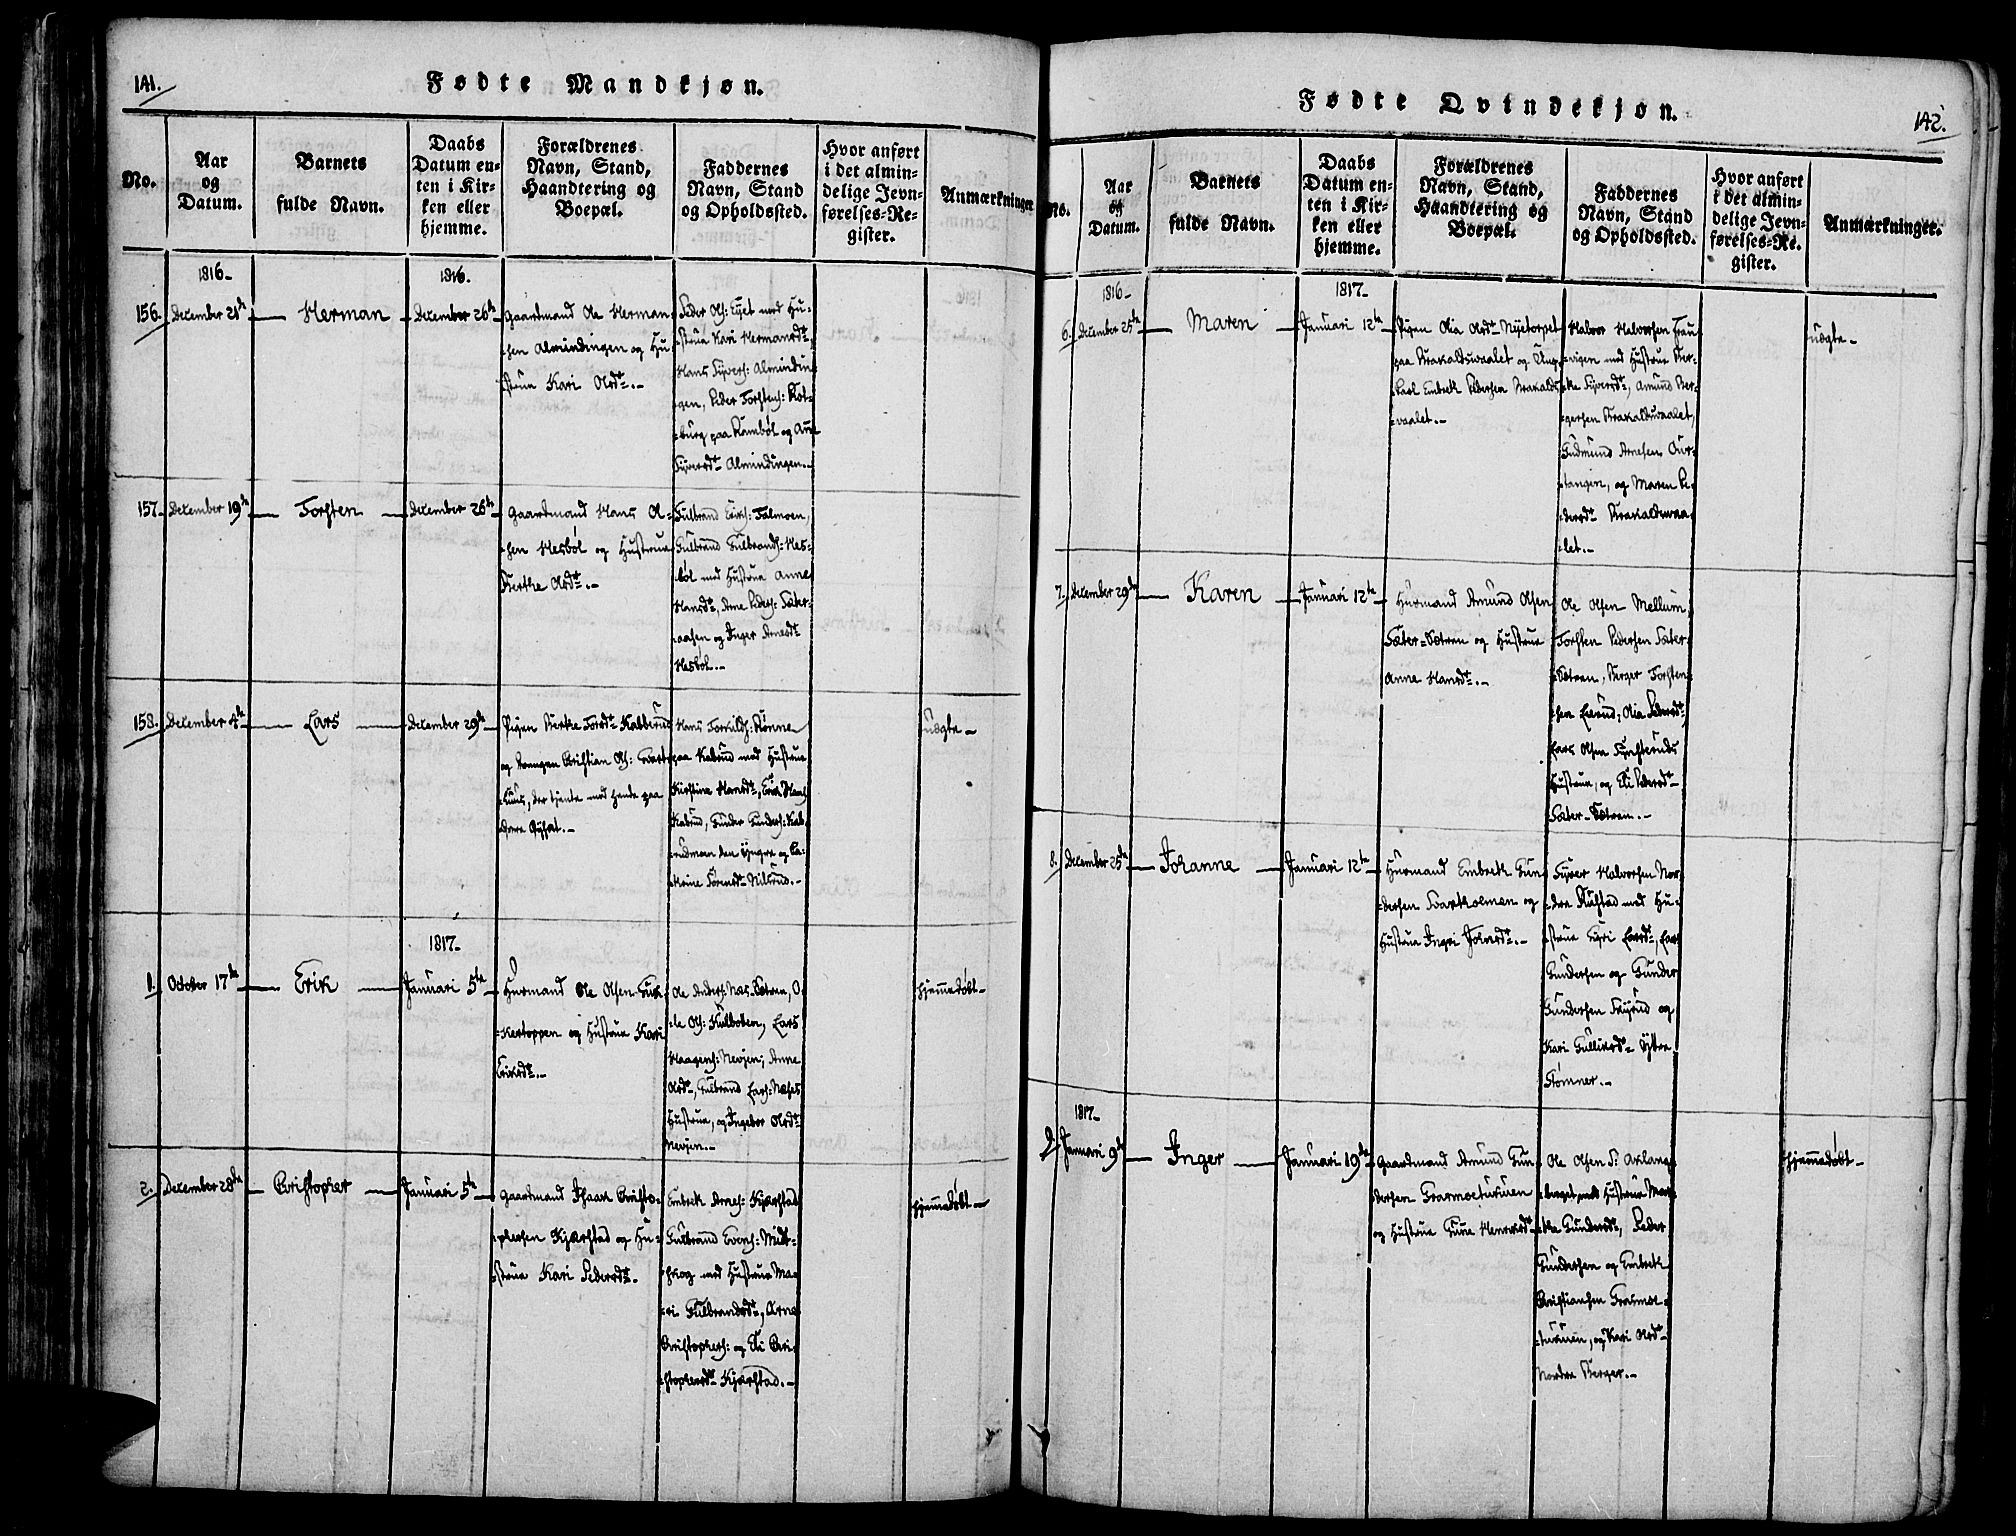 141.
Fødte Mandkjøn.
No.
Aar
og
Datum.
Barnets
fulde Navn.
Daabs
Datum en-
ten i Kir-
ken eller
hjemme.
Forældrenes
Navn, Stand,
Haandtering og
Boepæl.
Faddernes
Navn, Stand
og Opholdssted.
Hvor anført
i det almin-
delige Jevn-
førelses-Re-
gister.
Anmærkninger
1816-
1816.
156.
December 21de
Herman
December 26de
Gaardmand Ole Herman
-sen Almindingen og Hu
-strue Kari Olsdr.-
Peder Ols: Eyet med Hu-
-strue Kari Hermansdr.
Hans Syvers: Almindin
-gen, Peder Torstens: Kot-
-burg paa Rømbøl og Anne
Syversdr Almindingen.-
157-
December 19de
Torsten
December 26de
Gaardmand Hans Ol-
-sen Mesbøl og Hustrue
Berthe Olsdr.-
Gulbrand Eriks: Falmoen,
Gulbrand Gulbrands: Mes-
-bøl med Hustrue Anne
Hansdr, Arne Peders: Sæter-
-aasen og Inger Arnesdr
Mesbøl.-
158.
December 4de
Lars
December 29de
Pigen Berthe Torsdr Kabberud
og Drengen Christian Ols:
-huus, der tjente med hende paa
Hans Torkilds: Rønne
paa Kabrud med Hustrue
Kirstine Hansdr, Erik Hans:
Kabrud, Gunder Gunders: Kab-
-rudmoen den yngre og Ca-
-thrine Sørensdr Nilsrud.-
uægte-
1817-
1.
October 17de
Erik
Januari 5te
Huusmand Ole Olsen Guk-
-kertoppen og Hustrue Kari
Eriksdr.-
Ole Anders: Næs-Sætren, O-
-le Ols: Kulboten, Lars
Haagens: Nevjen, Anne
Olsdr, Gulbrand Lars: Næses
Hustrue, og Ingebor Olsdr
Nevjen.-
hjemmedøbt-
2.
December 28de
Christopher
Januari 5te
Gaardmand Isaak Christo-
-phersen Kjærstad og Hu-
-strue Kari Pedersdr.
Embrek Arnes: Kjærstad
Gulbrand Evens: Midt-
-skog med Hustrue Ma-
-ri Gulbrandsdr, Arne
Christophers: og Eli Chri-
-stophersdr Kjærstad.-
hjemmedøbt-
142.
Fødte Qvindekjøn.
No.
Aar
og
Datum.
Barnets
fulde Navn.
Daabs
Datum en-
ten i Kir-
ken eller
hjemme.
Forældrenes
Navn, Stand,
Haandtering og
Boepæl.
Faddernes
Navn, Stand
og Opholdssted.
Hvor anført
i det almin-
delige Jevn-
førelses-Re-
gister.
Anmærkninger.
1816-
1817-
6.
December 25de
Maren
Januari 12te
Pigen Olia Olsdr Nyetorpet
paa Brakaldsvaalet og Ung-
-karl Embrek Pedersen Brakalds-
-vaalet.-
Halvor Halvorsen Trau-
-vigen med Hustrue Ber-
-the Syversdr, Amund Ber-
-gersen Brakaldsvaalet,
Gudmund Arnesen Our-
-tangen, og Maren Pe-
-dersdr Brakaldsvaa-
-let.-
uægte-
7.
December 29de
Karen
Januari 12te
Huusmand Amund Olsen
Sæter-Sætren og Hustrue
Anne Hansdr.-
Ole Olsen Mellum
Torsten Pedersen Sæter-
-Sætren, Berger Torsten-
-sen Lierud, Olia Pedersdr,
Lars Olsen Hustrue, og Eli Pedersdr-
Sæter-Sætren.-
8.
December 25de
Johanne
Januari 12te
Huusmand Embrek Gun-
-dersen Svartholmen og
Hustrue Ingri Johnsdr.-
Syver Halvorsen Nor-
-dre Rustad med Hu-
-strue Gyri Larsdr, Lars
Gundersen og Gunder
Gundersen Skyrud og
Kari Gulliksdr Yttre
Strømner.-
1817-
9.
Januari 9de
Inger
Januari 19de
Gaardmand Amund Gun-
-dersen Grasmoeturuen
og Hustrue Gune Henriksdr-
Ole Olsen S: Aklang-
-berget med Hustrue Mar-
-the Gundersdr, Peder
Gundersen og Embrek
Christiansen Grasmoe-
-turuen, og Kari Olsdr-
Nordre Berger.-
hjemmedøbt-